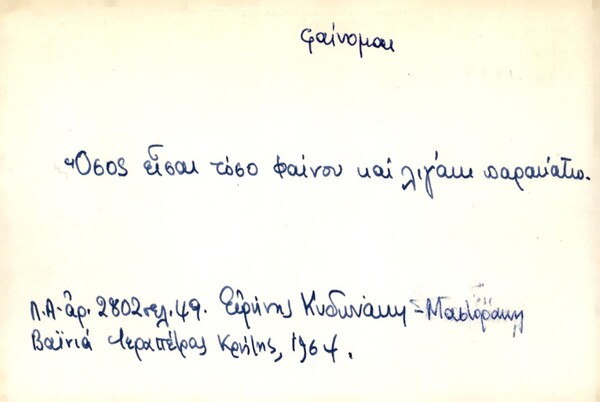 φαίνομαι
Ὅσος εἶσαι τόσο φαίνου καί λιγάκι παρακάτω.
Λ.Α. ἀρ. 2802 σελ. 49. Εἰρήνης Κυδωνάκη-Μαστοράκη
Βαϊνιά Ἱεραπέτρας Κρήτης, 1964.